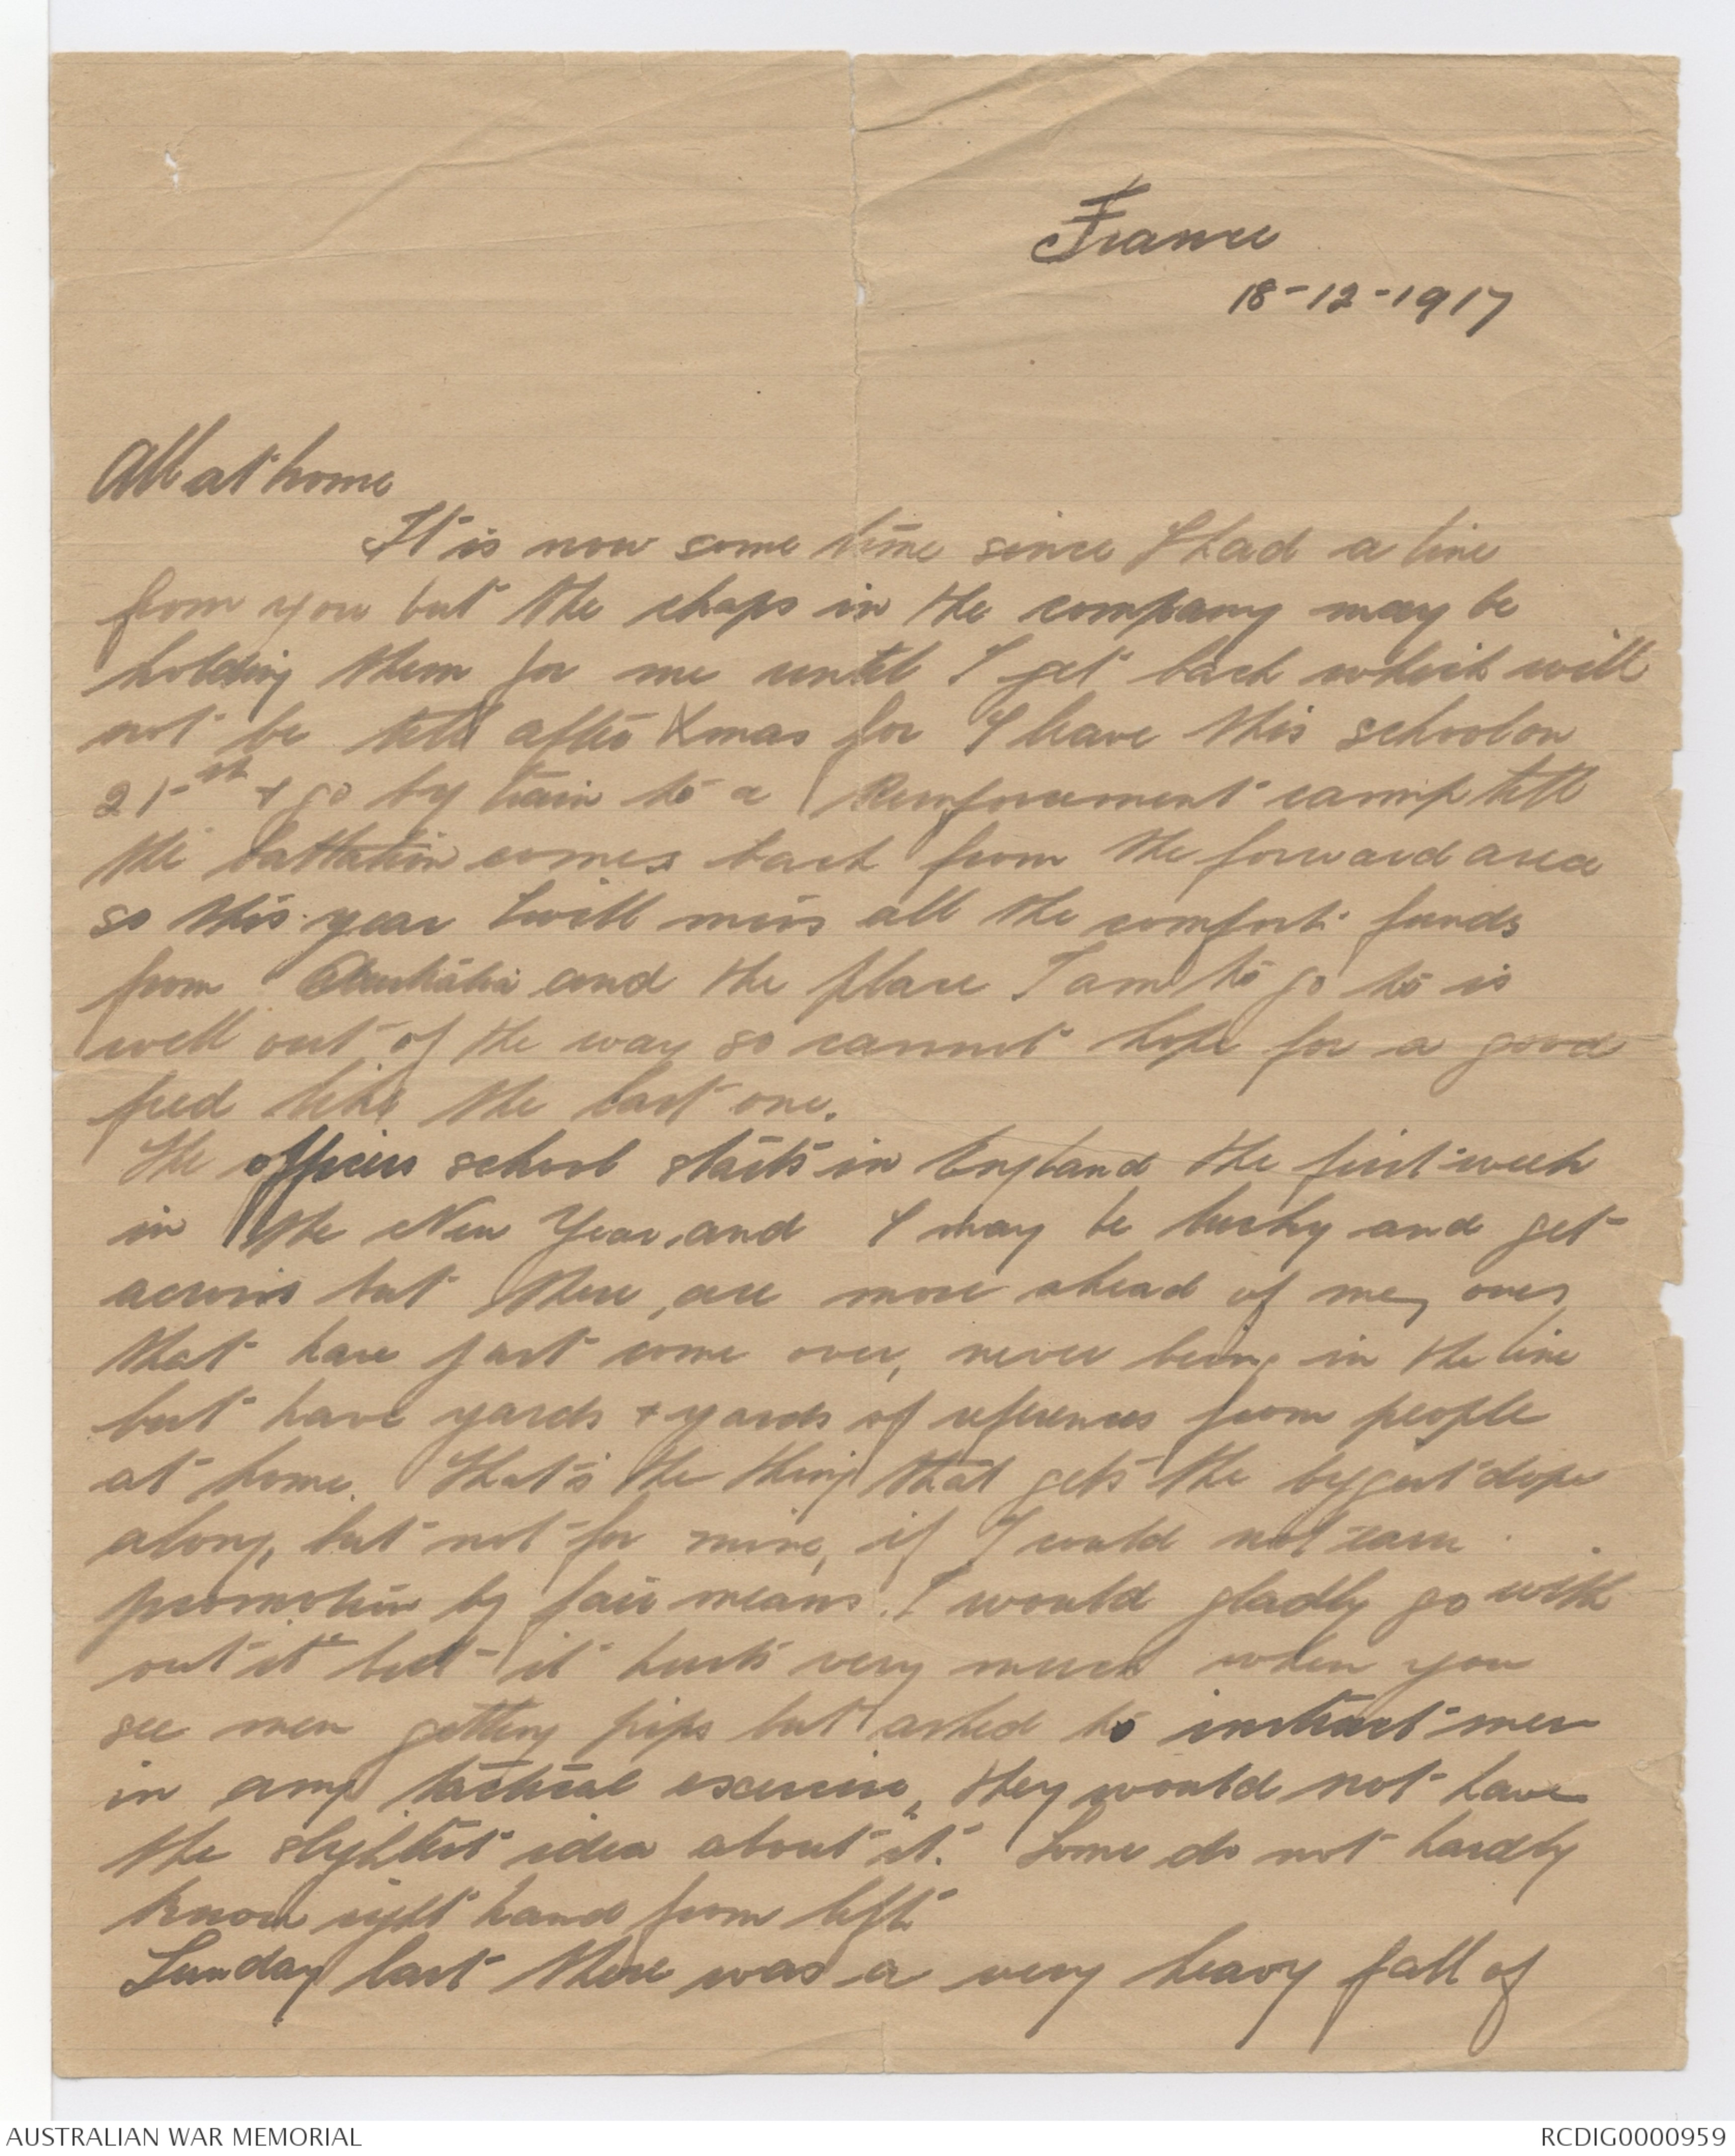 France
18-12-1917
All at home
It is now some time since I had a line
from you but the chaps in the company may be
holding them for me until I get back which will
not be till after Xmas for I leave this school on
21st + go by train to a Reinforcement camp till
the battalion comes back from the forward area
so this year I will miss all the comfort funds
from Australia and the place I am to go to is
well out of the way so cannot hope for a good
feed like the last one.
The officers school starts in England the first week
in the New Year, and I may be lucky and get
across but there are more ahead of me, ones
that have just come over, never being in the line
but have yards + yards of references from people
at home. That's the thing that gets the biggest dope
along, but not for mine, if I could not earn
promotion by fair means I would gladly go with
out it but it hurts very much when you
see men getting pips but asked to instruct men
in any tactical exercise, they would not have
the slightest idea about it. Some do not hardly
know right hand from left
Sunday last there was a very heavy fall of
AUSTRALIAN WAR MEMORIAL
RCDIG0000959